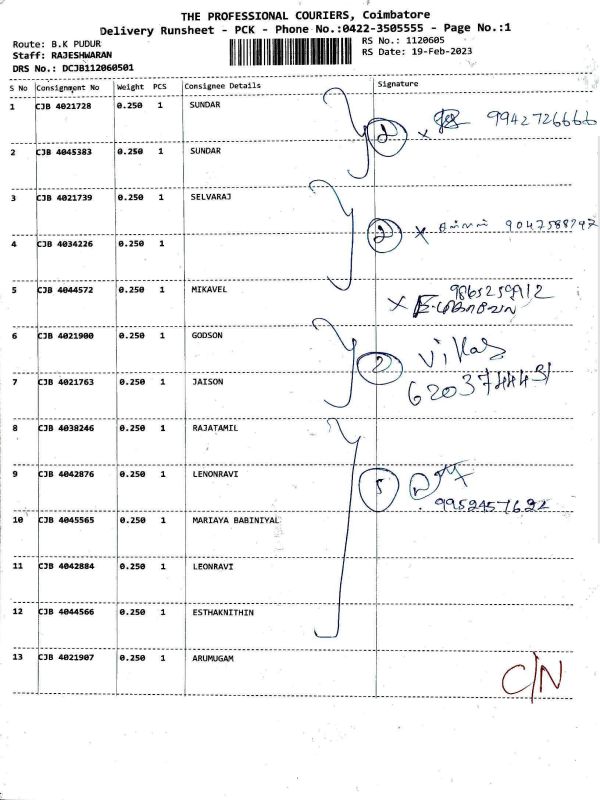 THE PROFESSIONAL COURIERS, Coimbatore
Delivery Runsheet - PCK - Phone No.:0422-3505555 - Page No.:1
Route: B.K PUDUR
RS No.: 1120605
Staff: RAJESHWARAN
RS Date: 19-Feb-2023
DRS No.: DCJB112060501
S No Consignment No Weight PCS Consignee Details Signature
1 CJB 4021728 0.250 1 SUNDAR
2 x 9942726666
2 CJB 4045383 0.250 1 SUNDAR
3 CJB 4021739 0.250 1 SELVARAJ
2 x
4 CJB 4034226 0.250 1
5 CJB 4044572 0.250 1 MIKAVEL
x
6 CJB 4021900 0.250 1 GODSON
2 Vikas
7 CJB 4021763 0.250 1 JAISON
8 CJB 4038246 0.250 1 RAJATAMIL
9 CJB 4042876 0.250 1 LENONRAVI
5
9952457622
10 CJB 4045565 0.250 1 MARIAYA BABINIYAL
11 CJB 4042884 0.250 1 LEONRAVI
12 CJB 4044566 0.250 1 ESTHAKNITHIN
13 CJB 4021907 0.250 1 ARUMUGAM
C/N